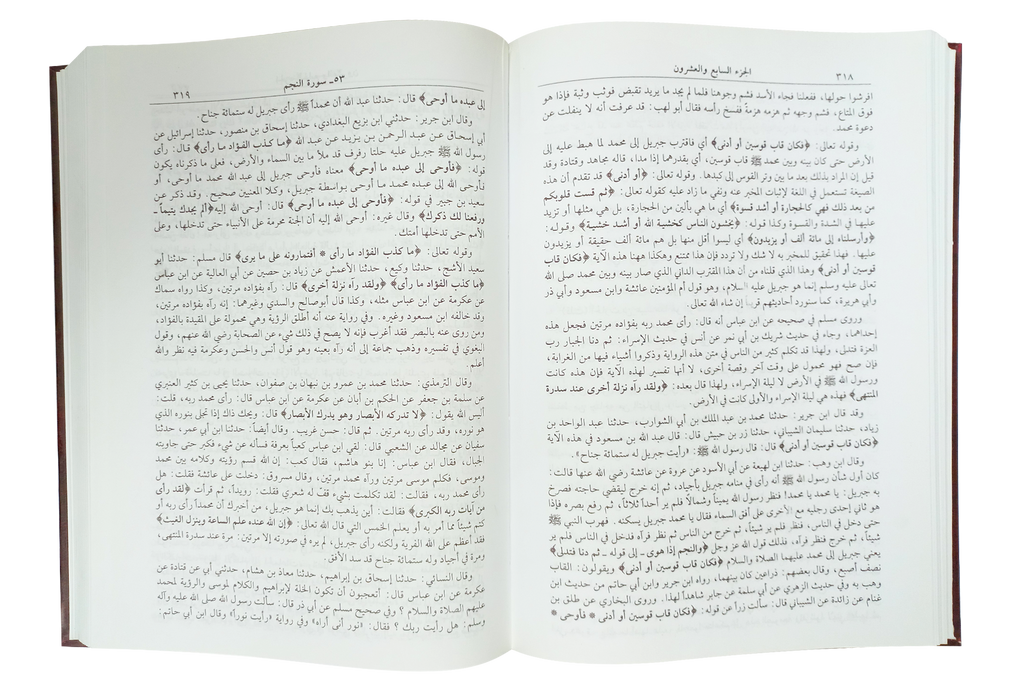 ٣١٨
الجزء السابع والعشرون
افرشوا حولها، ففعلنا فجاء الأسد فشم وجوهنا فلما لم يجد ما يريد تقبض فوثب وثبة فإذا هو
فوق المتاع، فشم وجهه ثم هزمه هزمة ففسخ رأسه فقال أبو لهب: قد عرفت أنه لا ينفلت عن
دعوة محمد.
وقوله تعالى: ﴿فكان قاب قوسين أو أدنى﴾ أي فاقترب جبريل إلى محمد لما هبط عليه إلى
الأرض حتى كان بينه وبين محمد ﷺ قاب قوسين، أي بقدرهما إذا مدا، قاله مجاهد وقتادة وقد
قيل إن المراد بذلك بعد ما بين وتر القوس إلى كبدها. وقوله تعالى: ﴿أو أدنى﴾ قد تقدم أن هذه
الصيغة تستعمل في اللغة لإثبات المخبر عنه ونفي ما زاد عليه كقوله تعالى: ﴿ثم قست قلوبكم
من بعد ذلك فهي كالحجارة أو أشد قسوة﴾ أي ما هي بألين من الحجارة، بل هي مثلها أو تزيد
عليها في الشدة والقسوة وكذا قوله: ﴿يخشون الناس كخشية الله أو أشد خشية﴾ وقوله:
﴿وأرسلناه إلى مائة ألف أو يزيدون﴾ أي ليسوا أقل منها بل هم مائة ألف حقيقة أو يزيدون
عليها. فهذا تحقيق للمخبر به لا شك ولا تردد فإن هذا ممتنع وهكذا ههنا هذه الآية ﴿فكان قاب
قوسين أو أدنى﴾ وهذا الذي قلناه من أن هذا المقترب الداني الذي صار بينه وبين محمد صلى الله
تعالى عليه وسلم إنما هو جبريل عليه السلام، وهو قول أم المؤمنين عائشة وابن مسعود وأبي ذر
وأبي هريرة، كما سنورد أحاديثهم قريبا إن شاء الله تعالى.
وروى مسلم في صحيحه عن ابن عباس أنه قال: رأى محمد ربه بفؤاده مرتين فجعل هذه
إحداهما، وجاء في حديث شريك بن أبي نمر عن أنس في حديث الإسراء: ثم دنا الجبار رب
العزة فتدلى، ولهذا قد تكلم كثير من الناس في متن هذه الرواية وذكروا أشياء فيها من الغرابة،
فإن صح فهو محمول على وقت آخر وقصة أخرى، لا أنها تفسير لهذه الآية فإن هذه كانت
ورسول الله ﷺ في الأرض لا ليلة الإسراء، ولهذا قال بعده: ﴿ولقد رآه نزلة أخرى عند سدرة
المنتهى﴾ فهذه هي ليلة الإسراء والأولى كانت في الأرض.
وقد قال ابن جرير: حدثنا محمد بن عبد الملك بن أبي الشوارب، حدثنا عبد الواحد بن
زياد، حدثنا سليمان الشيباني، حدثنا زر بن حبيش قال: قال عبد الله بن مسعود في هذه الآية
﴿فكان قاب قوسين أو أدنى﴾ قال: قال رسول الله ﷺ: «رأيت جبريل له ستمائة جناح».
وقال ابن وهب: حدثنا ابن لهيعة عن أبي الأسود عن عروة عن عائشة رضي الله عنها قالت:
كان أول شأن رسول الله ﷺ أنه رأى في منامه جبريل بأجياد، ثم إنه خرج ليقضي حاجته فصرخ
به جبريل: يا محمد يا محمد! فنظر رسول الله يميناً وشمالاً فلم ير أحداً ثلاثاً، ثم رفع بصره فإذا
هو ثاني إحدى رجليه مع الأخرى على أفق السماء فقال يا محمد جبريل يسكنه. فهرب النبي ﷺ
حتى دخل في الناس، فنظر فلم ير شيئاً، ثم خرج من الناس ثم نظر فرآه فدخل في الناس فلم ير
شيئاً، ثم خرج فنظر فرآه، فذلك قول الله عز وجل ﴿والنجم إذا هوى ـ إلى قوله ـ ثم دنا فتدلى﴾
يعني جبريل إلى محمد عليهما الصلاة والسلام ﴿فكان قاب قوسين أو أدنى﴾ ويقولون: القاب
نصف أصبع، وقال بعضهم: ذراعين كان بينهما، رواه ابن جرير وابن أبي حاتم من حديث ابن
وهب به وفي حديث الزهري عن أبي سلمة عن جابر شاهداً لهذا. وروى البخاري عن طلق بن
غنام عن زائدة عن الشيباني قال: سألت زراً عن قوله: ﴿فكان قاب قوسين أو أدنى * فأوحى *
٥٣ـ سورة النجم
٣١٩
إلى عبده ما أوحى﴾ قال: حدثنا عبد الله أن محمداً ﷺ رأى جبريل له ستمائة جناح.
وقال ابن جرير: حدثني ابن بزيع البغدادي، حدثنا إسحاق بن منصور، حدثنا إسرائيل عن
أبي إسحاق عن عبد الرحمن بن يزيد عن عبد الله ﴿ما كذب الفؤاد ما رأى﴾ قال: رأى
رسول الله ﷺ جبريل عليه حلتا رفرف قد ملأ ما بين السماء والأرض، فعلى ما ذكرناه يكون
قوله: ﴿فأوحى إلى عبده ما أوحى﴾ معناه فأوحى جبريل إلى عبد الله محمد ما أوحى، أو
فأوحى الله إلى عبده محمد ما أوحى بواسطة جبريل، وكلا المعنيين صحيح. وقد ذكر عن
سعيد بن جبير في قوله: ﴿فأوحى إلى عبده ما أوحى﴾ قال: أوحى الله إليه ﴿ألم يجدك يتيماً ـ
ورفعنا لك ذكرك﴾ وقال غيره: أوحى الله إليه أن الجنة محرمة على الأنبياء حتى تدخلها، وعلى
الأمم حتى تدخلها أمتك.
وقوله تعالى: ﴿ما كذب الفؤاد ما رأى * أفتمارونه على ما يرى﴾ قال مسلم: حدثنا أبو
سعيد الأشج، حدثنا وكيع، حدثنا الأعمش عن زياد بن حصين عن أبي العالية عن ابن عباس
﴿ما كذب الفؤاد ما رأى﴾ ﴿ولقد رآه نزلة أخرى﴾ قال: رآه بفؤاده مرتين، وكذا رواه سماك
عن عكرمة عن ابن عباس مثله، وكذا قال أبو صالح والسدي وغيرهما: إنه رآه بفؤاده مرتين،
وقد خالفه ابن مسعود وغيره. وفي رواية عنه أنه أطلق الرؤية وهي محمولة على المقيدة بالفؤاد،
ومن روى عنه بالبصر فقد أغرب فإنه لا يصح في ذلك شيء عن الصحابة رضي الله عنهم، وقول
البغوي في تفسيره وذهب جماعة إلى أنه رآه بعينه وهو قول أنس والحسن وعكرمة فيه نظر والله
أعلم.
وقال الترمذي: حدثنا محمد بن عمرو بن نبهان بن صفوان، حدثنا يحيى بن كثير العنبري
عن سلمة بن جعفر عن الحكم بن أبان عن عكرمة عن ابن عباس قال: رأى محمد ربه، قلت:
أليس الله يقول: ﴿لا تدركه الأبصار وهو يدرك الأبصار﴾ قال: ويحك ذاك إذا تجلى بنوره الذي
هو نوره، وقد رأى ربه مرتين. ثم قال: حسن غريب. وقال أيضاً: حدثنا ابن أبي عمر، حدثنا
سفيان عن مجالد عن الشعبي قال: لقي ابن عباس كعباً بعرفة فسأله عن شيء فكبر حتى جاوبته
الجبال، فقال ابن عباس: إنا بنو هاشم، فقال كعب: إن الله قسم رؤيته وكلامه بين محمد
وموسى، فكلم موسى مرتين ورآه محمد مرتين. وقال مسروق: دخلت على عائشة فقلت: هل
رأى محمد ربه، فقالت: لقد تكلمت بشيء قف له شعري فقلت: رويداً، ثم قرأت ﴿لقد رأى
من آيات ربه الكبرى﴾ فقالت: أين يذهب بك إنما هو جبريل، من أخبرك أن محمداً رأى ربه أو
كتم شيئاً مما أمر به أو يعلم الخمس التي قال الله تعالى: ﴿إن الله عنده علم الساعة وينزل الغيث﴾
فقد أعظم على الله الفرية ولكنه رأى جبريل، لم يره في صورته إلا مرتين: مرة عند سدرة المنتهى،
ومرة في أجياد وله ستمائة جناح قد سد الأفق.
وقال النسائي: حدثنا إسحاق بن إبراهيم، حدثنا معاذ بن هشام، حدثني أبي عن قتادة عن
عكرمة عن ابن عباس قال: أتعجبون أن تكون الخلة لإبراهيم والكلام لموسى والرؤية لمحمد
عليهم الصلاة والسلام؟ وفي صحيح مسلم عن أبي ذر قال: سألت رسول الله صلى الله عليه وآله
وسلم: هل رأيت ربك؟ فقال: «نور أنى أراه» وفي رواية «رأيت نوراً» وقال ابن أبي حاتم: